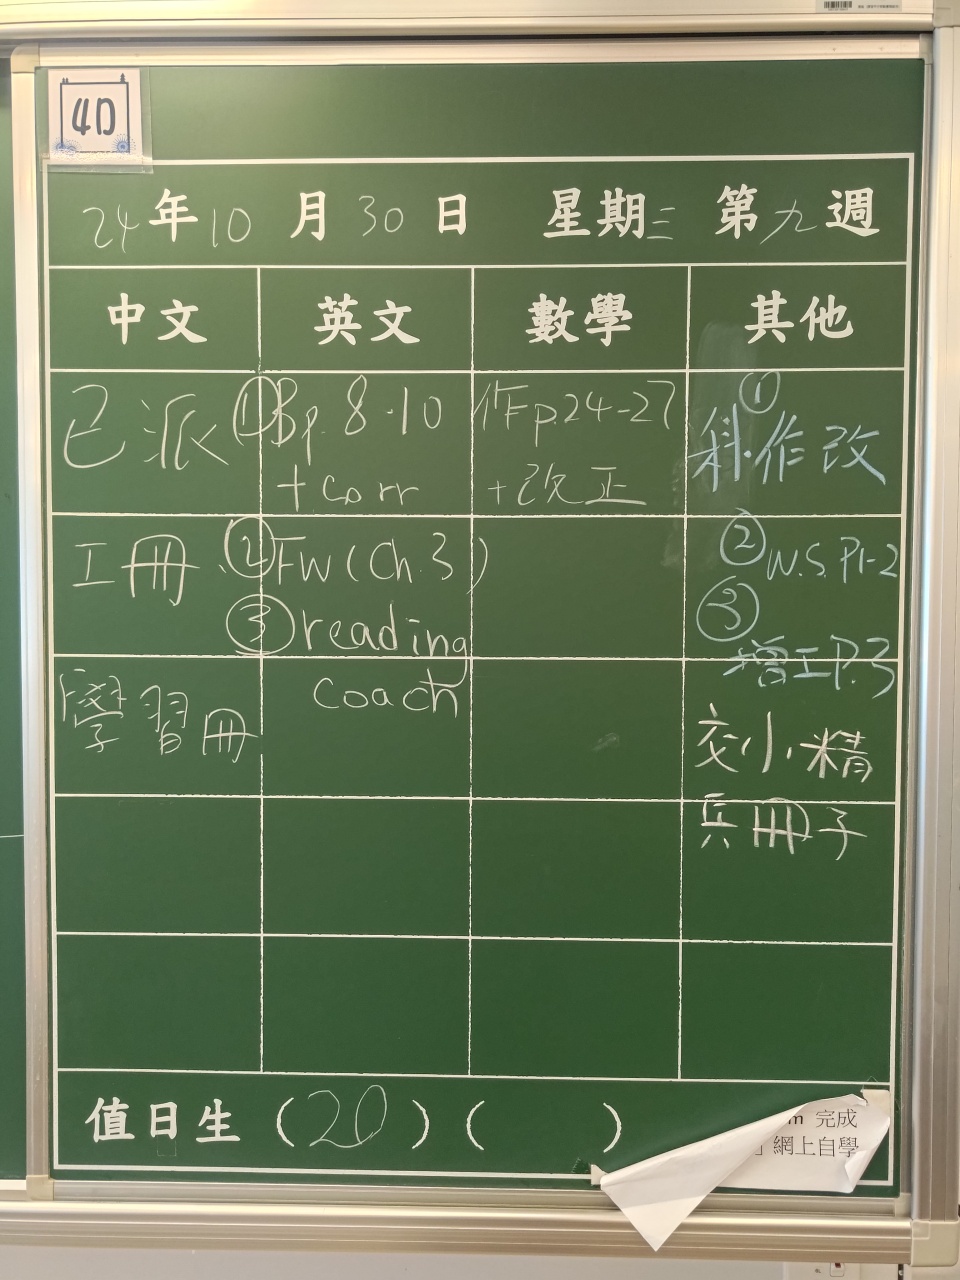 4D
24年10月30日 星期三 第九週
中文 英文 數學 其他
已派
工冊
學習冊
①Bp.8-10
+corr
②FW(Ch.3)
③reading
coach
作p.24-27
+改正
①
科作改
②W.S.P1-2
③
增工P.3
交小精
兵冊子
值日生(20)( )
m 完成
」網上自學